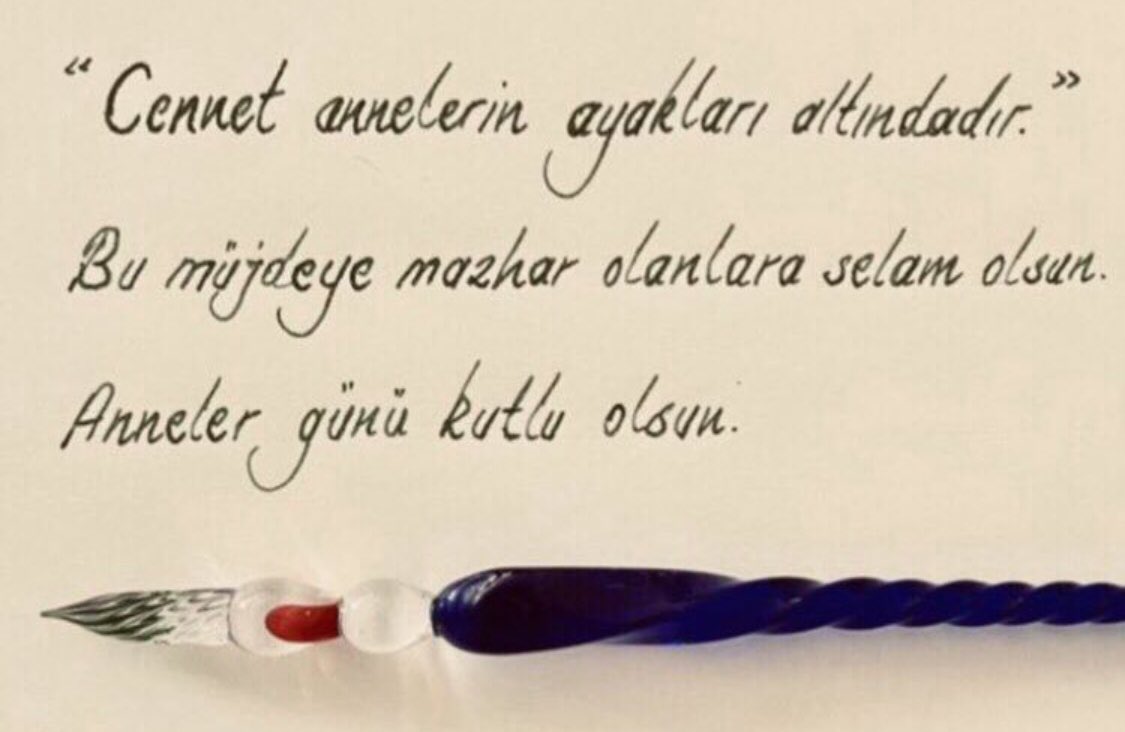 “Cennet annelerin ayakları altındadır.”
Bu müjdeye mazhar olanlara selam olsun.
Anneler günü kutlu olsun.